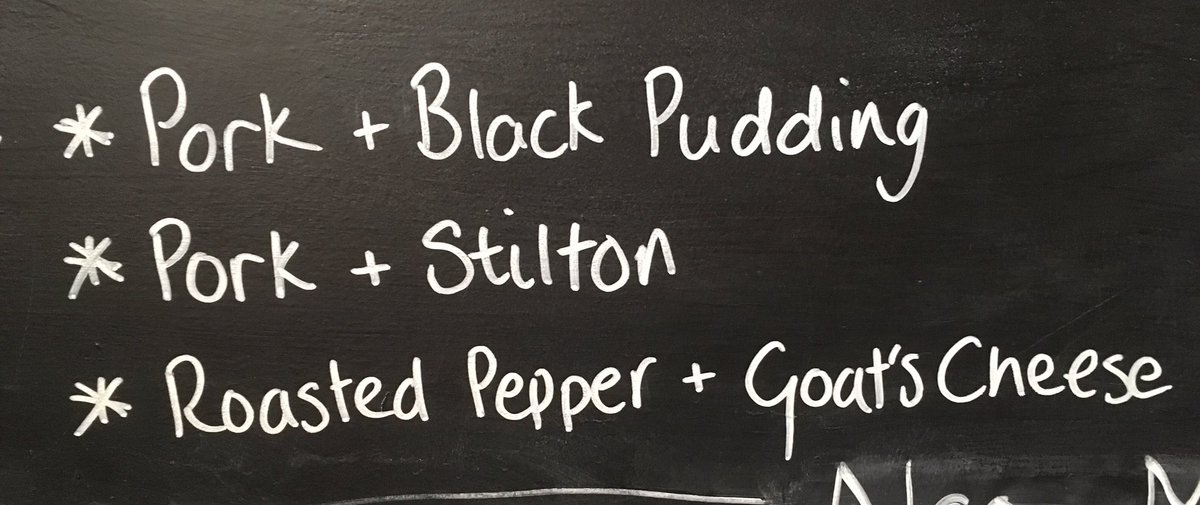 * Pork + Black Pudding
* Pork + Stilton
* Roasted Pepper + Goat's Cheese